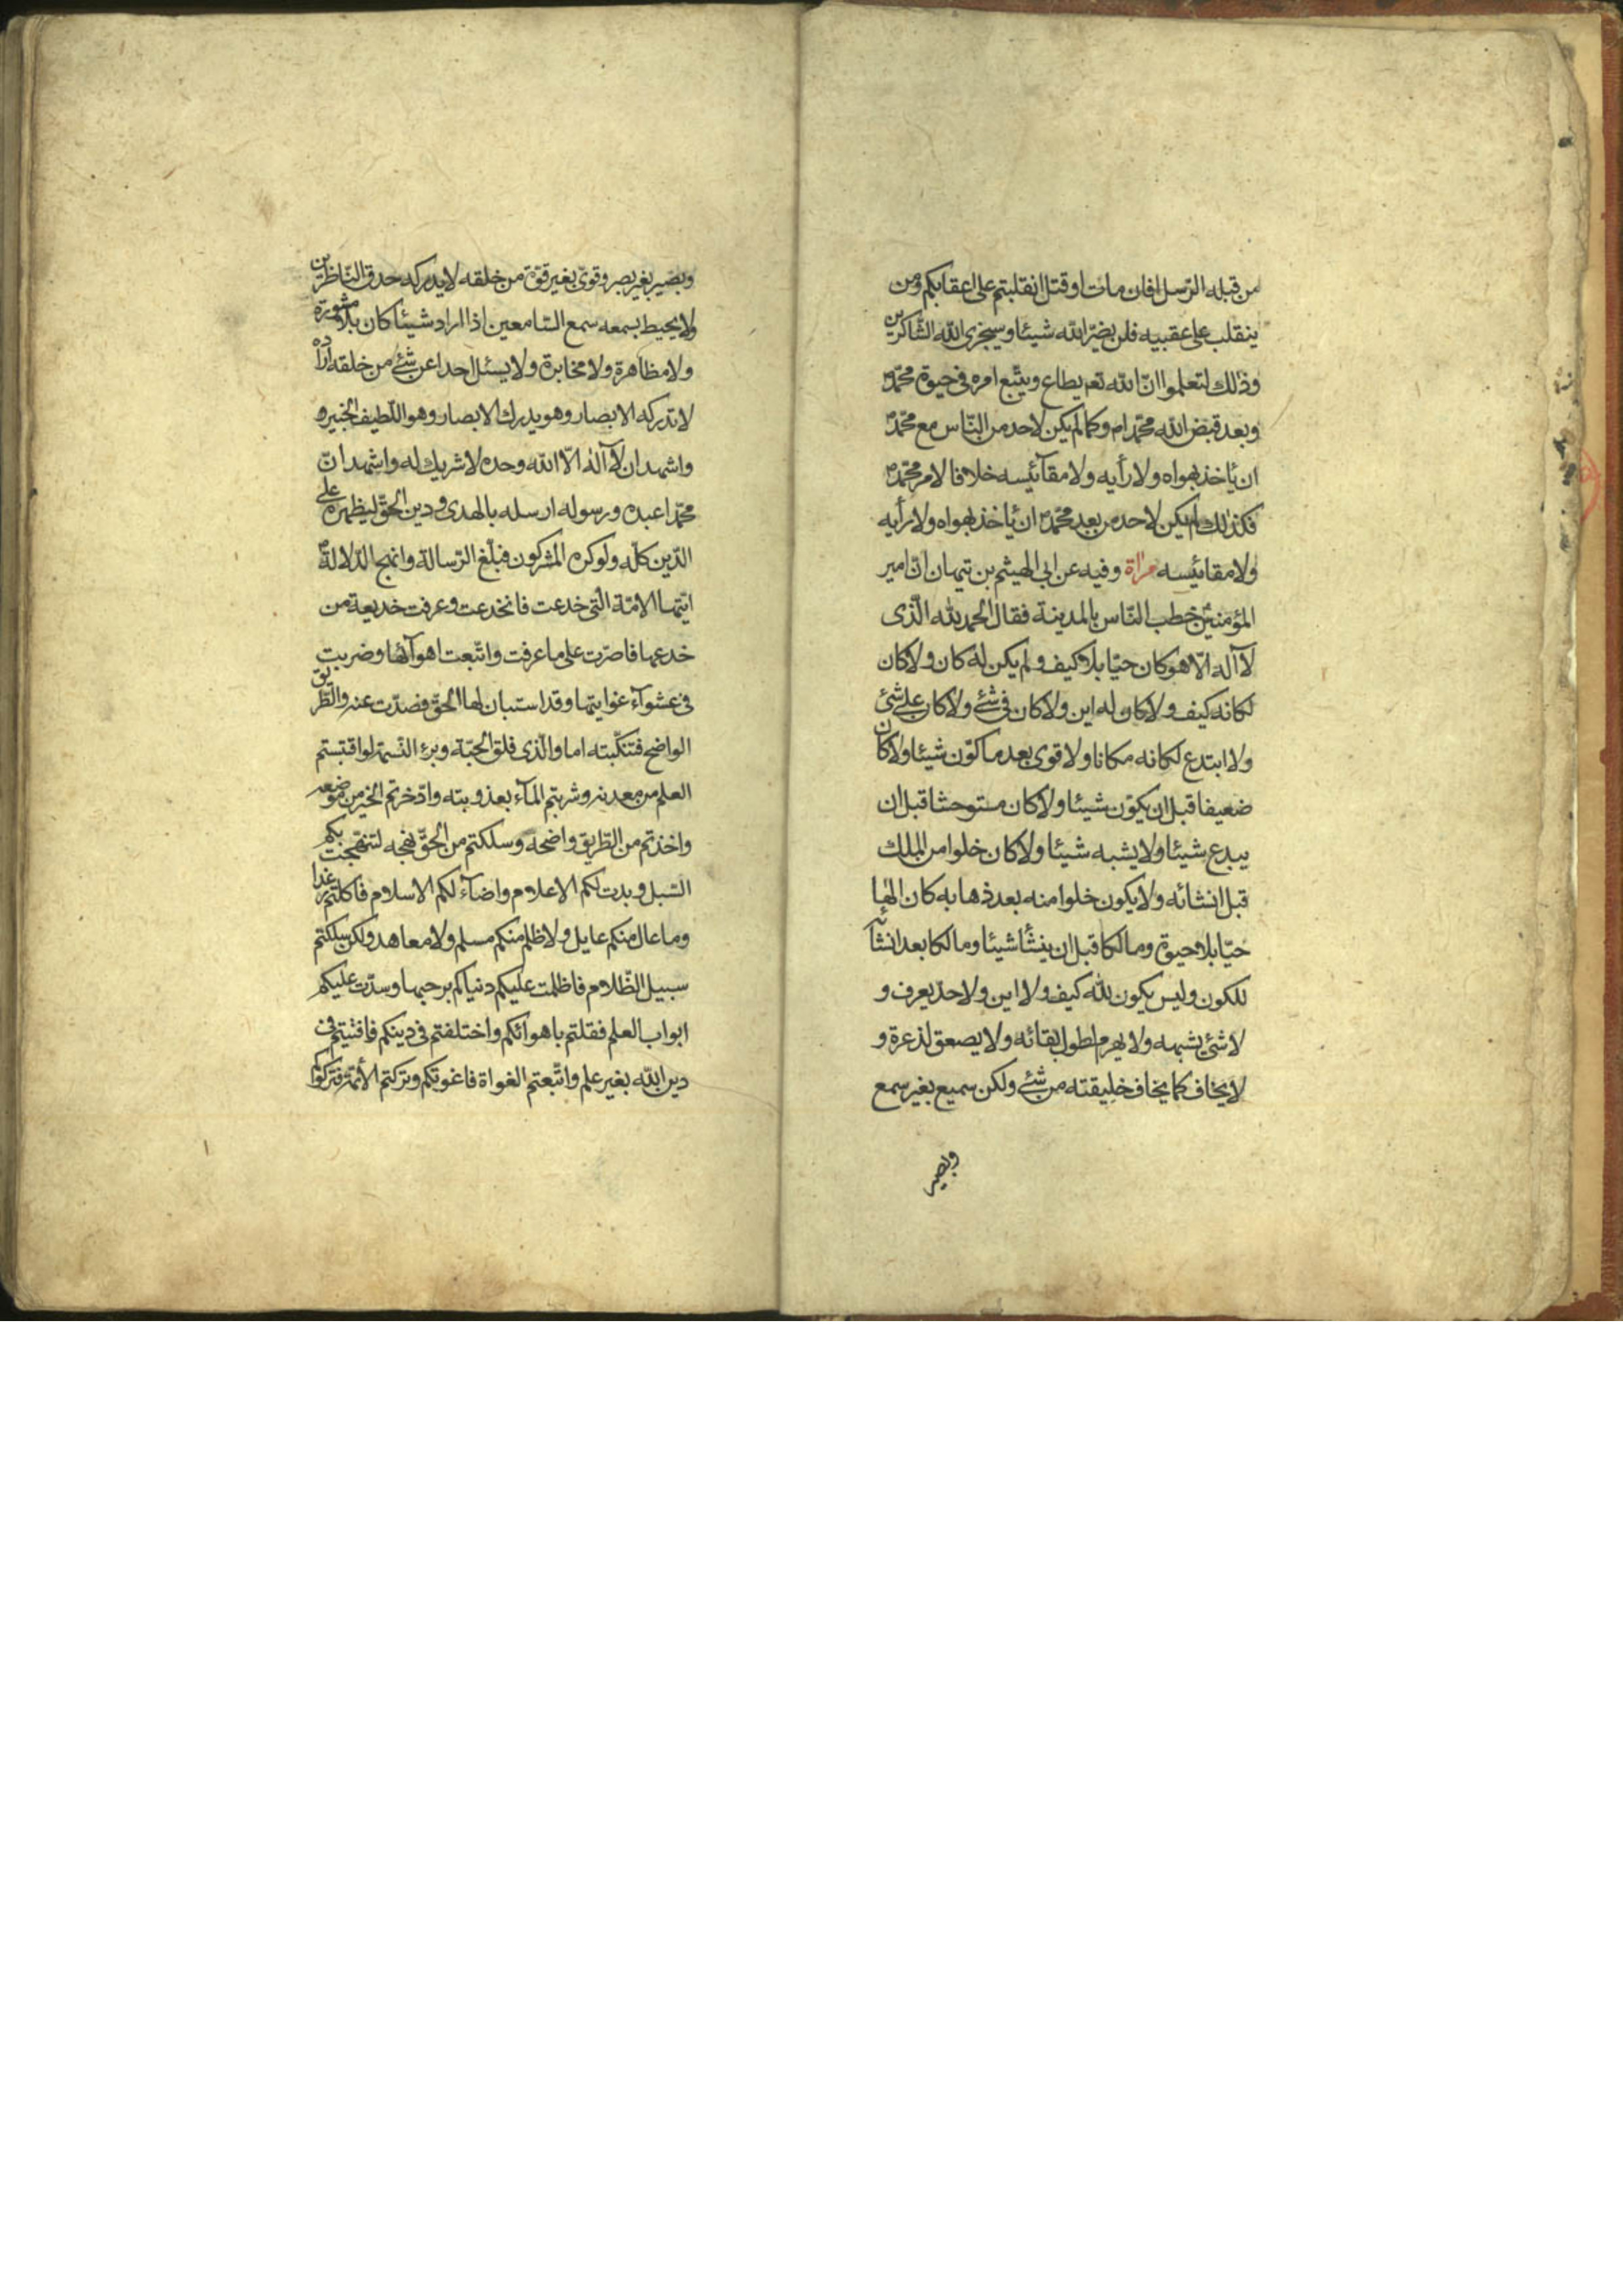 من قبله الرّسل افان مات او قتل انقلبتم على اعقابكم ومن
ينقلب على عقبيه فلن يضرّ الله شيئا وسيجزى الله الشّاكرين
وذلك لتعلموا انّ الله تعم يطاع ويتّبع امره فى حيوة محمّد ص
وبعد قبض الله محمّدا ص وكما لم يكن لاحد من النّاس مع محمّد ص
ان ياخذ بهواه ولا رأيه ولا مقآئيسه خلافا لامر محمّد ص
فكذلك لم يكن لاحد من بعد محمّد ص ان ياخذ بهواه ولا رأيه
ولا مقائيسه مرآة وفيه عن ابى الهيثم بن تيهان انّ امير
المؤمنين ع خطب النّاس بالمدينة فقال الحمد لله الّذى
لا آله الّا هو كان حيّا بلا كيف ولم يكن له كان ولا كان
لكانه كيف ولا كان له اين ولا كان فى شئ ولا كان على شئ
ولا ابتدع لكانه مكانا ولا قوى بعد ما كوّن شيئا ولا كان
ضعيفا قبل ان يكوّن شيئا ولا كان مستوحشا قبل ان
يبدع شيئا ولا يشبه شيئا ولا كان خلوا من الملك
قبل انشائه ولا يكون خلوا منه بعد ذهابه كان الها
حيّا بلا حيوة ومالكا قبل ان ينشأ شيئا ومالكا بعد انشآئه
للكون وليس يكون لله كيف ولا اين ولا حدّ يعرف و
لا شئ يشبهه ولا يهرم لطول بقائه ولا يصعق لذعرة و
لا يخاف كما يخاف خليقته من شئ ولكن سميع بغير سمع
وبصير
وبصير بغير بصر وقوىّ بغير قوّة من خلقه لا يدركه حدق النّاظرين
ولا يحيط بسمعه سمع السّامعين اذا اراد شيئا كان بلا مشورة
ولا مظاهرة ولا مخابرة ولا يسئل احدا عن شئ من خلقه اراده
لا تدركه الابصار وهو يدرك الابصار وهو اللّطيف الخبير ه
واشهد ان لا آله الّا الله وحده لا شريك له واشهد انّ
محمّدا عبده ورسوله ارسله بالهدى ودين الحقّ ليظهره على
الدّين كلّه ولو كره المشركون فبلّغ الرّسالة وانهج الدّلالة ص
ايّتها الامّة الّتى خدعت فانخدعت وعرفت خديعة من
خدعها فاصرّت على ما عرفت واتّبعت اهوآئها وضربت
فى عشوآء غوايتها وقد استبان لها الحقّ فصدّت عنه والطّريق
الواضح فتنكّبته اما والّذى فلق الحبّة وبرء النّسمة لو اقتبستم
العلم من معدنه وشربتم المآء بعذوبته وادّخرتم الخير من موضعه
واخذتم من الطّريق واضحه وسلكتم من الحقّ نهجه لنتهجت بكم
السّبل وبدت لكم الاعلام واضآء لكم الاسلام فاكلتم رغدا
وما عال منكم عايل ولا ظلم منكم مسلم ولا معاهد ولكن سلكتم
سبيل الظّلام فاظلمت عليكم دنياكم برحبها وسدّت عليكم
ابواب العلم فقلتم باهوائكم واختلفتم فى دينكم فافتيتم فى
دين الله بغير علم واتّبعتم الغواة فاغوتكم وتركتم الأئمّة فتركوكم